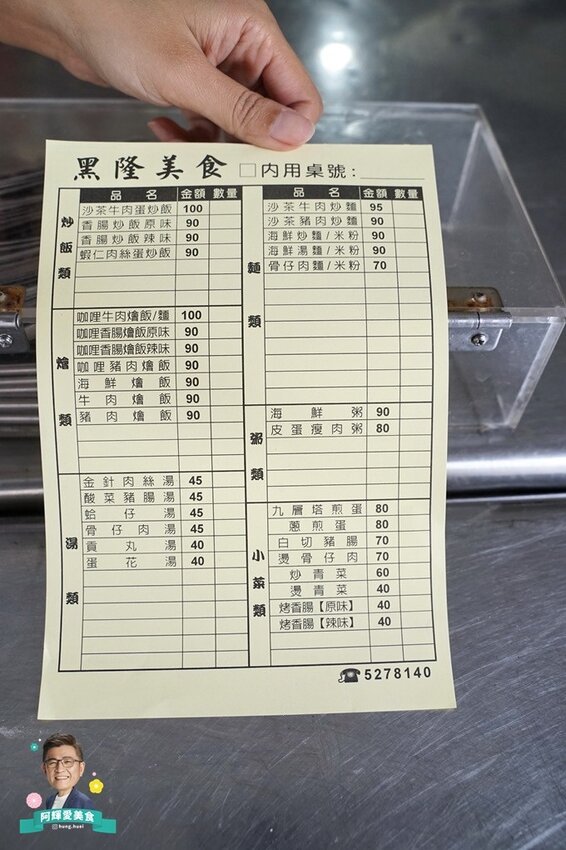 黑隆美食 □內用桌號：
炒飯類
品名 金額 數量
沙茶牛肉蛋炒飯 100
香腸炒飯原味 90
香腸炒飯辣味 90
蝦仁肉絲蛋炒飯 90
燴類
咖哩牛肉燴飯/麵 100
咖哩香腸燴飯原味 90
咖哩香腸燴飯辣味 90
咖哩豬肉燴飯 90
海鮮燴飯 90
牛肉燴飯 90
豬肉燴飯 90
湯類
金針肉絲湯 45
酸菜豬腸湯 45
蛤仔湯 45
骨仔肉湯 45
貢丸湯 40
蛋花湯 40
麵類
品名 金額 數量
沙茶牛肉炒麵 95
沙茶豬肉炒麵 90
海鮮炒麵/米粉 90
海鮮湯麵/米粉 90
骨仔肉麵/米粉 70
粥類
海鮮粥 90
皮蛋瘦肉粥 80
小菜類
九層塔煎蛋 80
蔥煎蛋 80
白切豬腸 70
燙骨仔肉 70
炒青菜 60
燙青菜 40
烤香腸【原味】 40
烤香腸【辣味】 40
☎5278140
阿輝愛美食
hung.huei